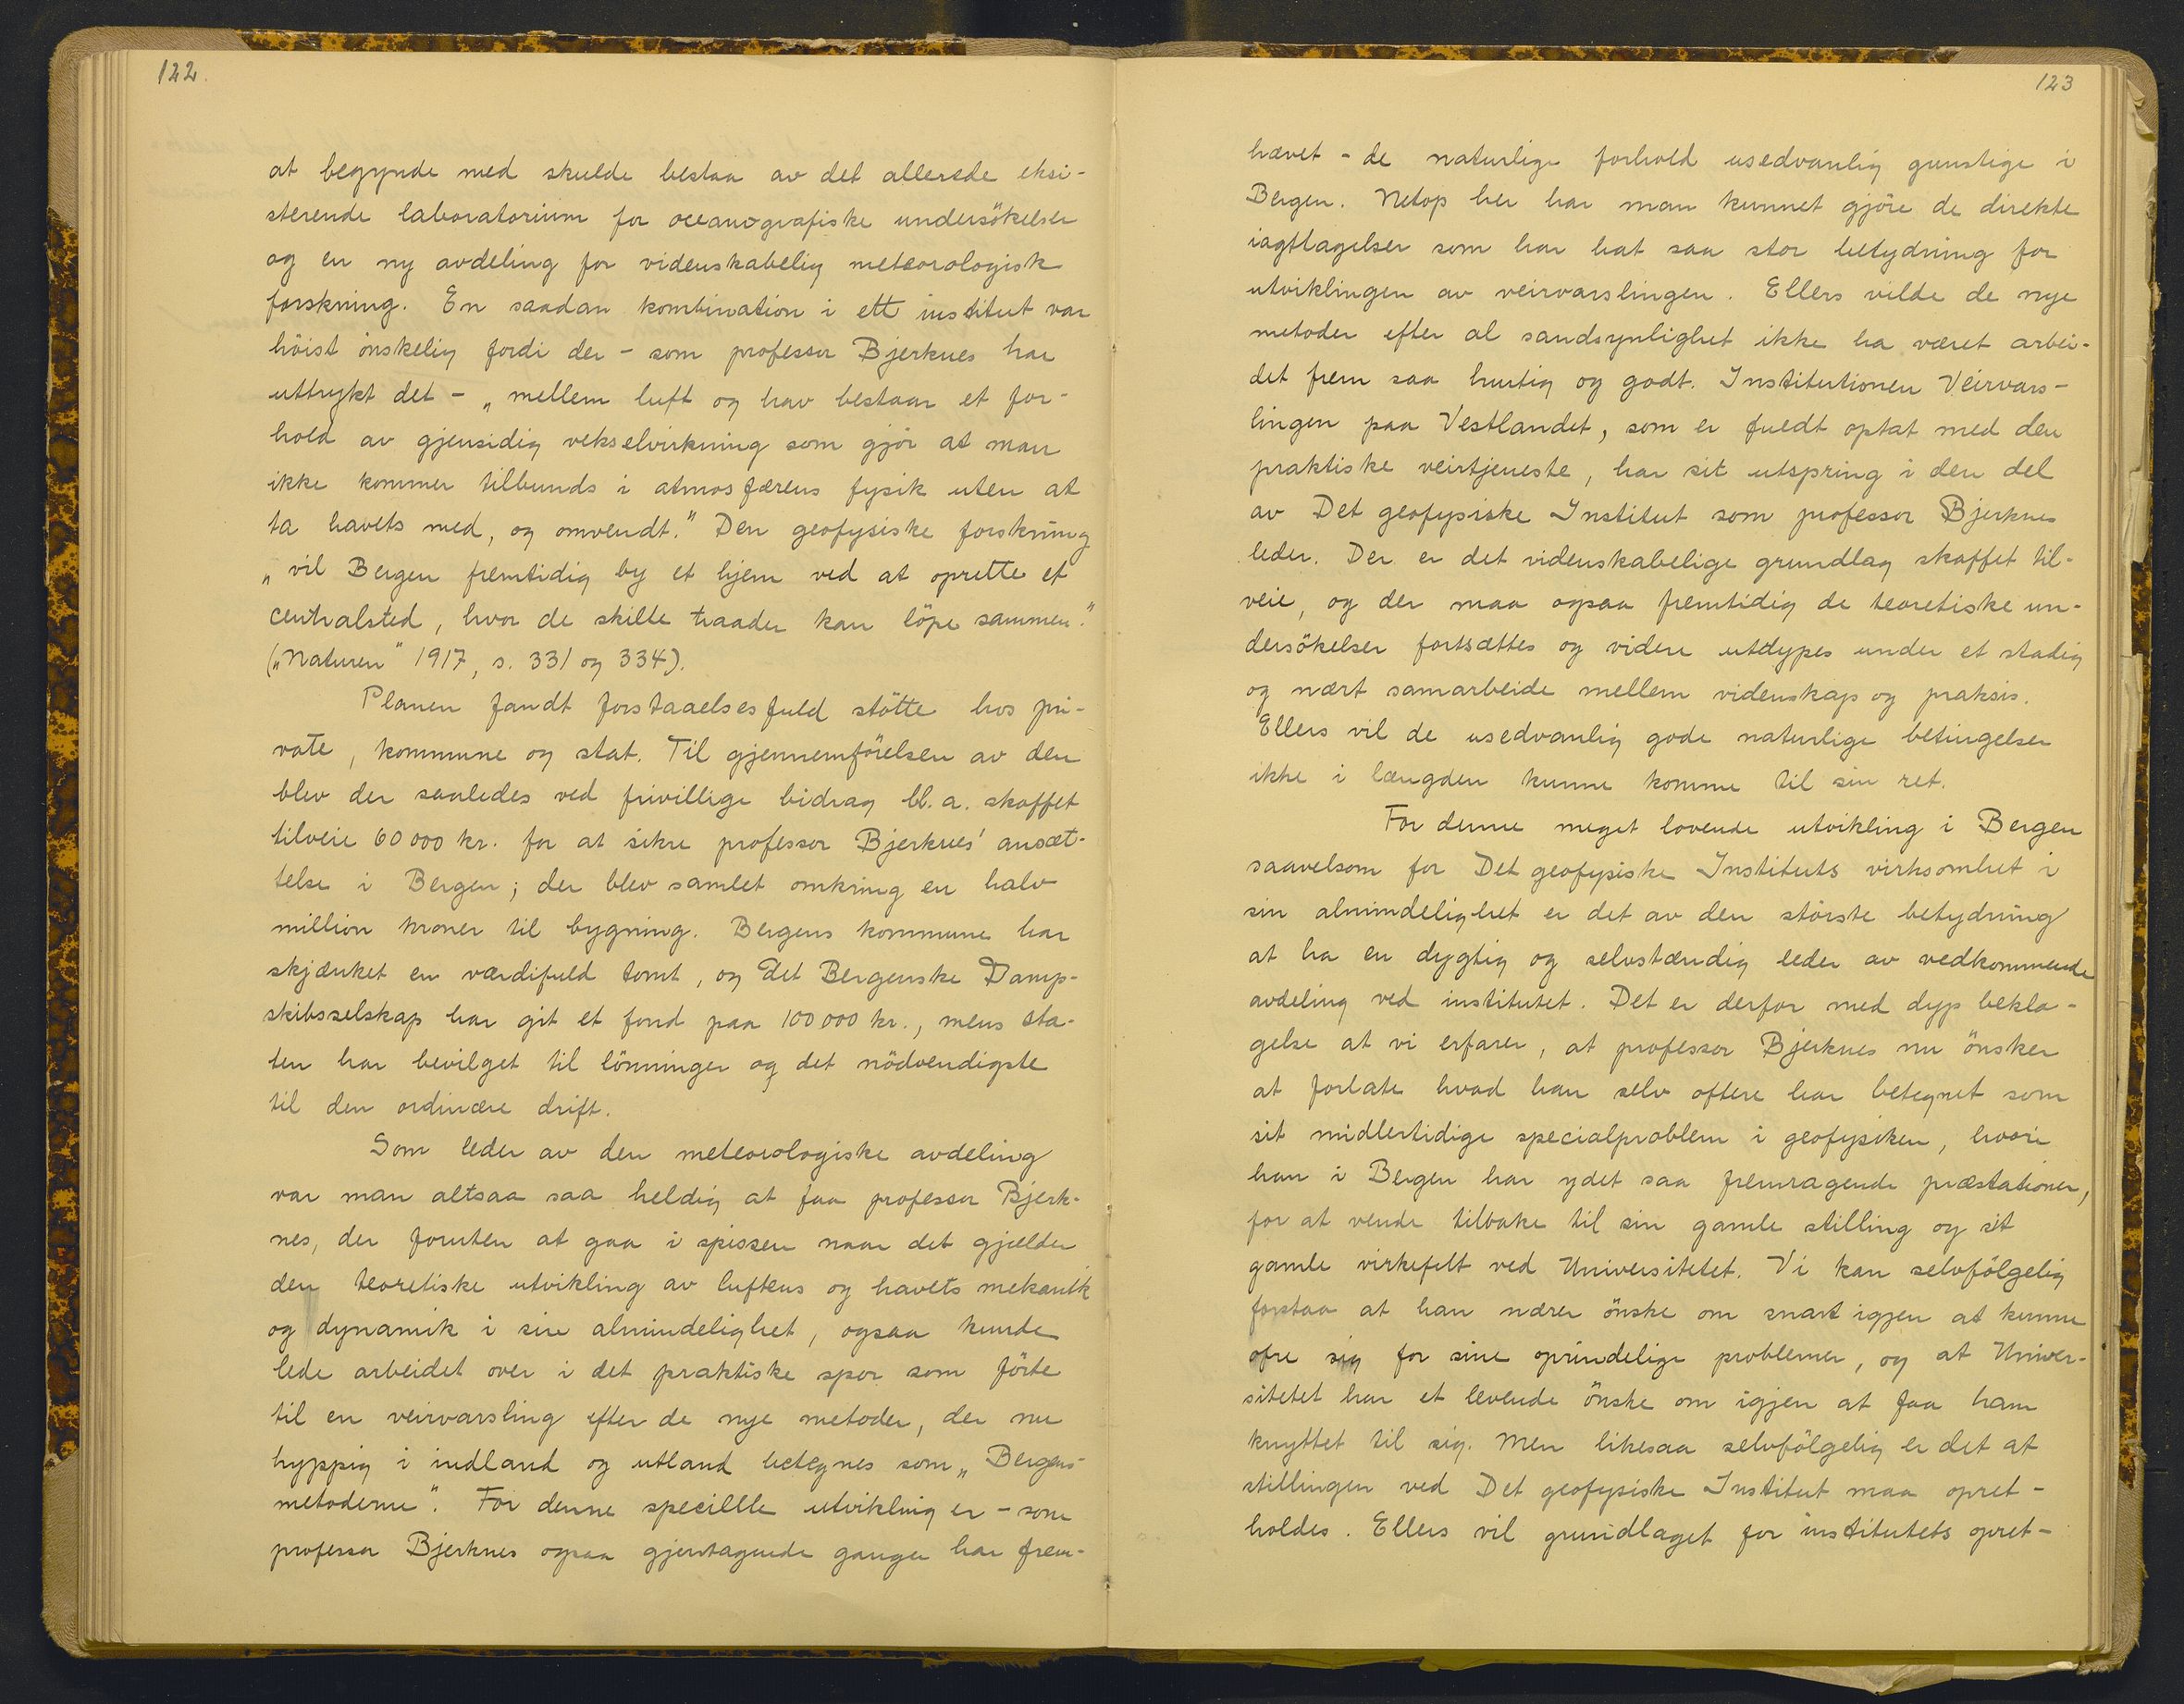 122.
at begynde med skulde bestaa av det allerede eksi-
sterende laboratorium for oceanografiske undersökelser
og en ny avdeling for videnskabelig meteorologisk
forskning. En saadan kombination i ett institut var
höist önskelig fordi der - som professor Bjerknes har
uttrykt det - „mellem luft og hav bestaar et for-
hold av gjensidig vekselvirkning som gjör at man
ikke kommer tilbunds i atmosfærens fysik uten at
ta havets med, og omvendt." Den geofysiske forskning
„vil Bergen fremtidig by et hjem ved at oprette et
centralsted, hvor de skilte traader kan löpe sammen."
(„Naturen" 1917, s. 331 og 334).
Planen fandt forstaaelsesfuld stötte hos pri-
vate, kommune og stat. Til gjennemförelsen av den
blev der saaledes ved frivillige bidrag bl. a. skaffet
tilveie 60 000 kr. for at sikre professor Bjerknes' ansæt-
telse i Bergen; der blev samlet omkring en halv
million kroner til bygning. Bergens kommune har
skjænket en værdifuld tomt, og det Bergenske Damp-
skibsselskap har git et fond paa 100 000 kr., mens sta-
ten har bevilget til lönninger og det nödvendigste
til den ordinære drift.
Som leder av den meteorologiske avdeling
var man altsaa saa heldig at faa professor Bjerk-
nes, der foruten at gaa i spissen naar det gjælder
den teoretiske utvikling av luftens og havets mekanik
og dynamik i sin almindelighet, ogsaa kunde
lede arbeidet over i det praktiske spor som förte
til en veirvarsling efter de nye metoder, der nu
hyppig i indland og utland betegnes som „Bergens-
metoderne". For denne specillle utvikling er - som
professor Bjerknes ogsaa gjentagende ganger har frem-
123
hævet - de naturlige forhold usedvanlig gunstige i
Bergen. Netop her har man kunnet gjöre de direkte
iagttagelser som har hat saa stor betydning for
utviklingen av veirvarslingen. Ellers vilde de nye
metoder efter al sandsynlighet ikke ha været arbei-
det frem saa hurtig og godt. Institutionen Veirvars-
lingen paa Vestlandet, som er fuldt optat med den
praktiske veirtjeneste, har sit utspring i den del
av Det geofysiske Institut som professor Bjerknes
leder. Der er det videnskabelige grundlag skaffet til-
veie, og der maa ogsaa fremtidig de teoretiske un-
dersökelser fortsættes og videre utdypes under et stadig
og nært samarbeide mellem videnskap og praksis.
Ellers vil de usedvanlig gode naturlige betingelser
ikke i længden kunne komme til sin ret.
For denne meget lovende utvikling i Bergen
saavelsom for Det geofysiske Instituts virksomhet i
sin almindelighet er det av den störste betydning
at ha en dygtig og selvstændig leder av vedkommende
avdeling ved institutet. Det er derfor med dyp bekla-
gelse at vi erfarer, at professor Bjerknes nu önsker
at forlate hvad han selv oftere har betegnet som
sit midlertidige specialproblem i geofysiken, hvori
han i Bergen har ydet saa fremragende præstationer,
for at vende tilbake til sin gamle stilling og sit
gamle virkefelt ved Universitetet. Vi kan selvfölgelig
forstaa at han nærer önske om snart igjen at kunne
ofre sig for sine oprindelige problemer, og at Univer-
sitetet har et levende önske om igjen at faa ham
knyttet til sig. Men likesaa selvfölgelig er det at
stillingen ved Det geofysiske Institut maa opret-
holdes. Ellers vil grundlaget for institutets opret-